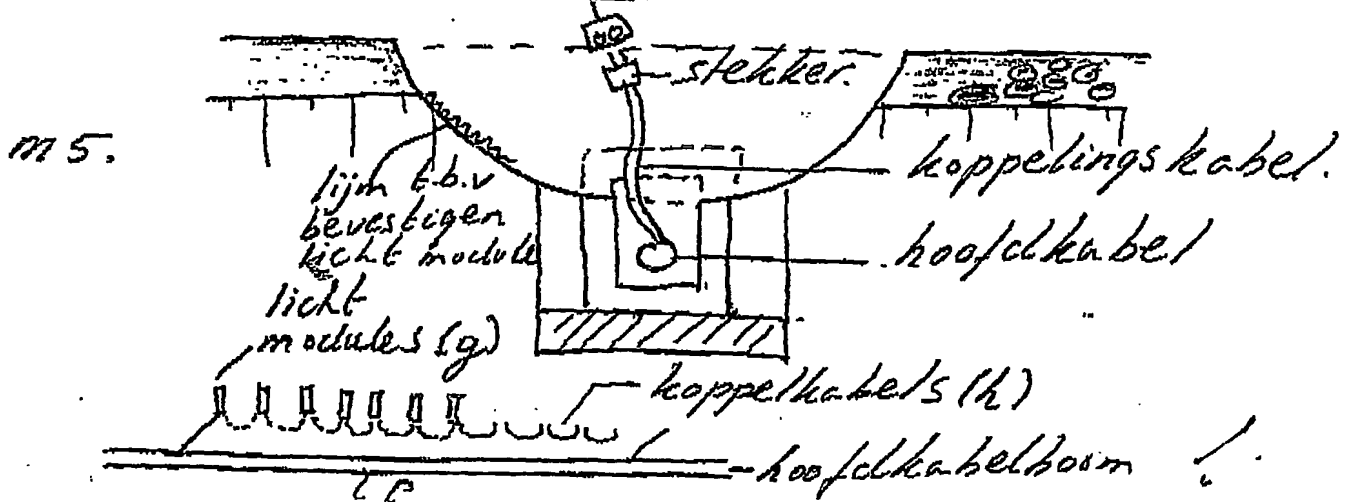 stekker.
m 5.
koppelingskabel.
lijm t.b.v
bevestigen
licht module
hoofdkabel
licht
modules (g)
koppelkabels (h)
hoofdkabelboom